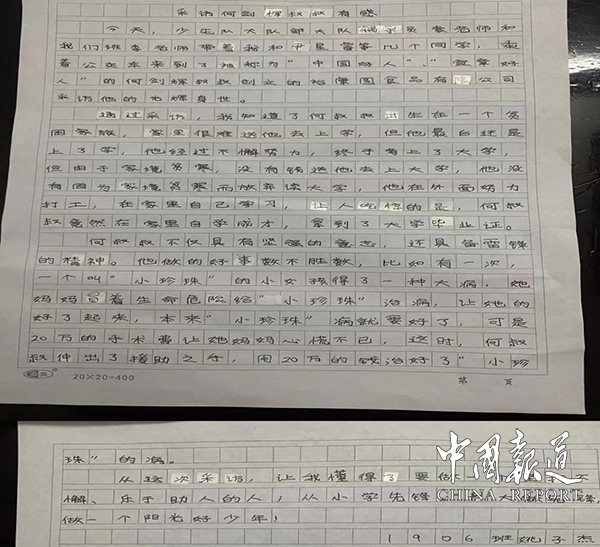 采访何剑辉叔叔有感
今天，少先队大队部大队辅导员李老师和
我们班李老师带着我和尹星富等几个同学，乘
着公交车来到了被称为"中国好人"、"宜章好
人"的何剑辉叔叔创立的裕康圆食品有限公司
采访他的光辉身世。
通过采访，我知道了何叔叔出生在一个贫
困家族，家里很难送他去上学，但他最后还是
上了学，他经过不懈努力，终于考上了大学，
但由于家境贫寒，没有钱送他去上大学，他没
有因为家境贫寒而放弃读大学，他在外面努力
打工，在家里自己学习，让人吃惊的是，何叔
叔竟然在家里自学成才，拿到了大学毕业证。
何叔叔不仅具有坚强的意志，还具备雷锋
的精神。他做的好事数不胜数，比如有一次，
一个叫"小珍珠"的小女孩得了一种大病，她
妈妈冒着生命危险给"小珍珠"治病，让她的
好了起来，本来"小珍珠"病就要好了，可是
20万的手术费让她妈妈心慌不已，这时，何叔
叔伸出了援助之手，用20万的钱治好了"小珍
20×20=400 第 页
珠"的病。
从这次采访，让我懂得了要做一
懈、乐于助人的人，从小学先锋
做一个阳光好少年！
1906班姚子杰
中国报道
CHINA REPORT